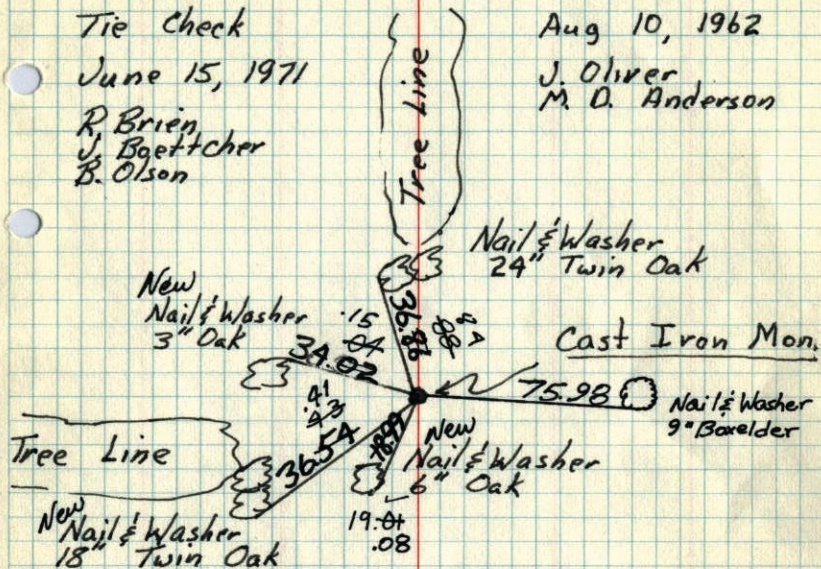 Tie Check
June 15, 1971
R. Brien
J. Boettcher
B. Olson
Aug 10, 1962
J. Oliver
M. D. Anderson
Tree Line
Nail & Washer
24" Twin Oak
36.86
.88
84
New
Nail & Washer
3" Oak
.15
.04
34.02
Cast Iron Mon.
75.98
Nail & Washer
9" Boxelder
.41
.43
36.54
Tree Line
New
Nail & Washer
6" Oak
19.01
.08
New
Nail & Washer
18" Twin Oak